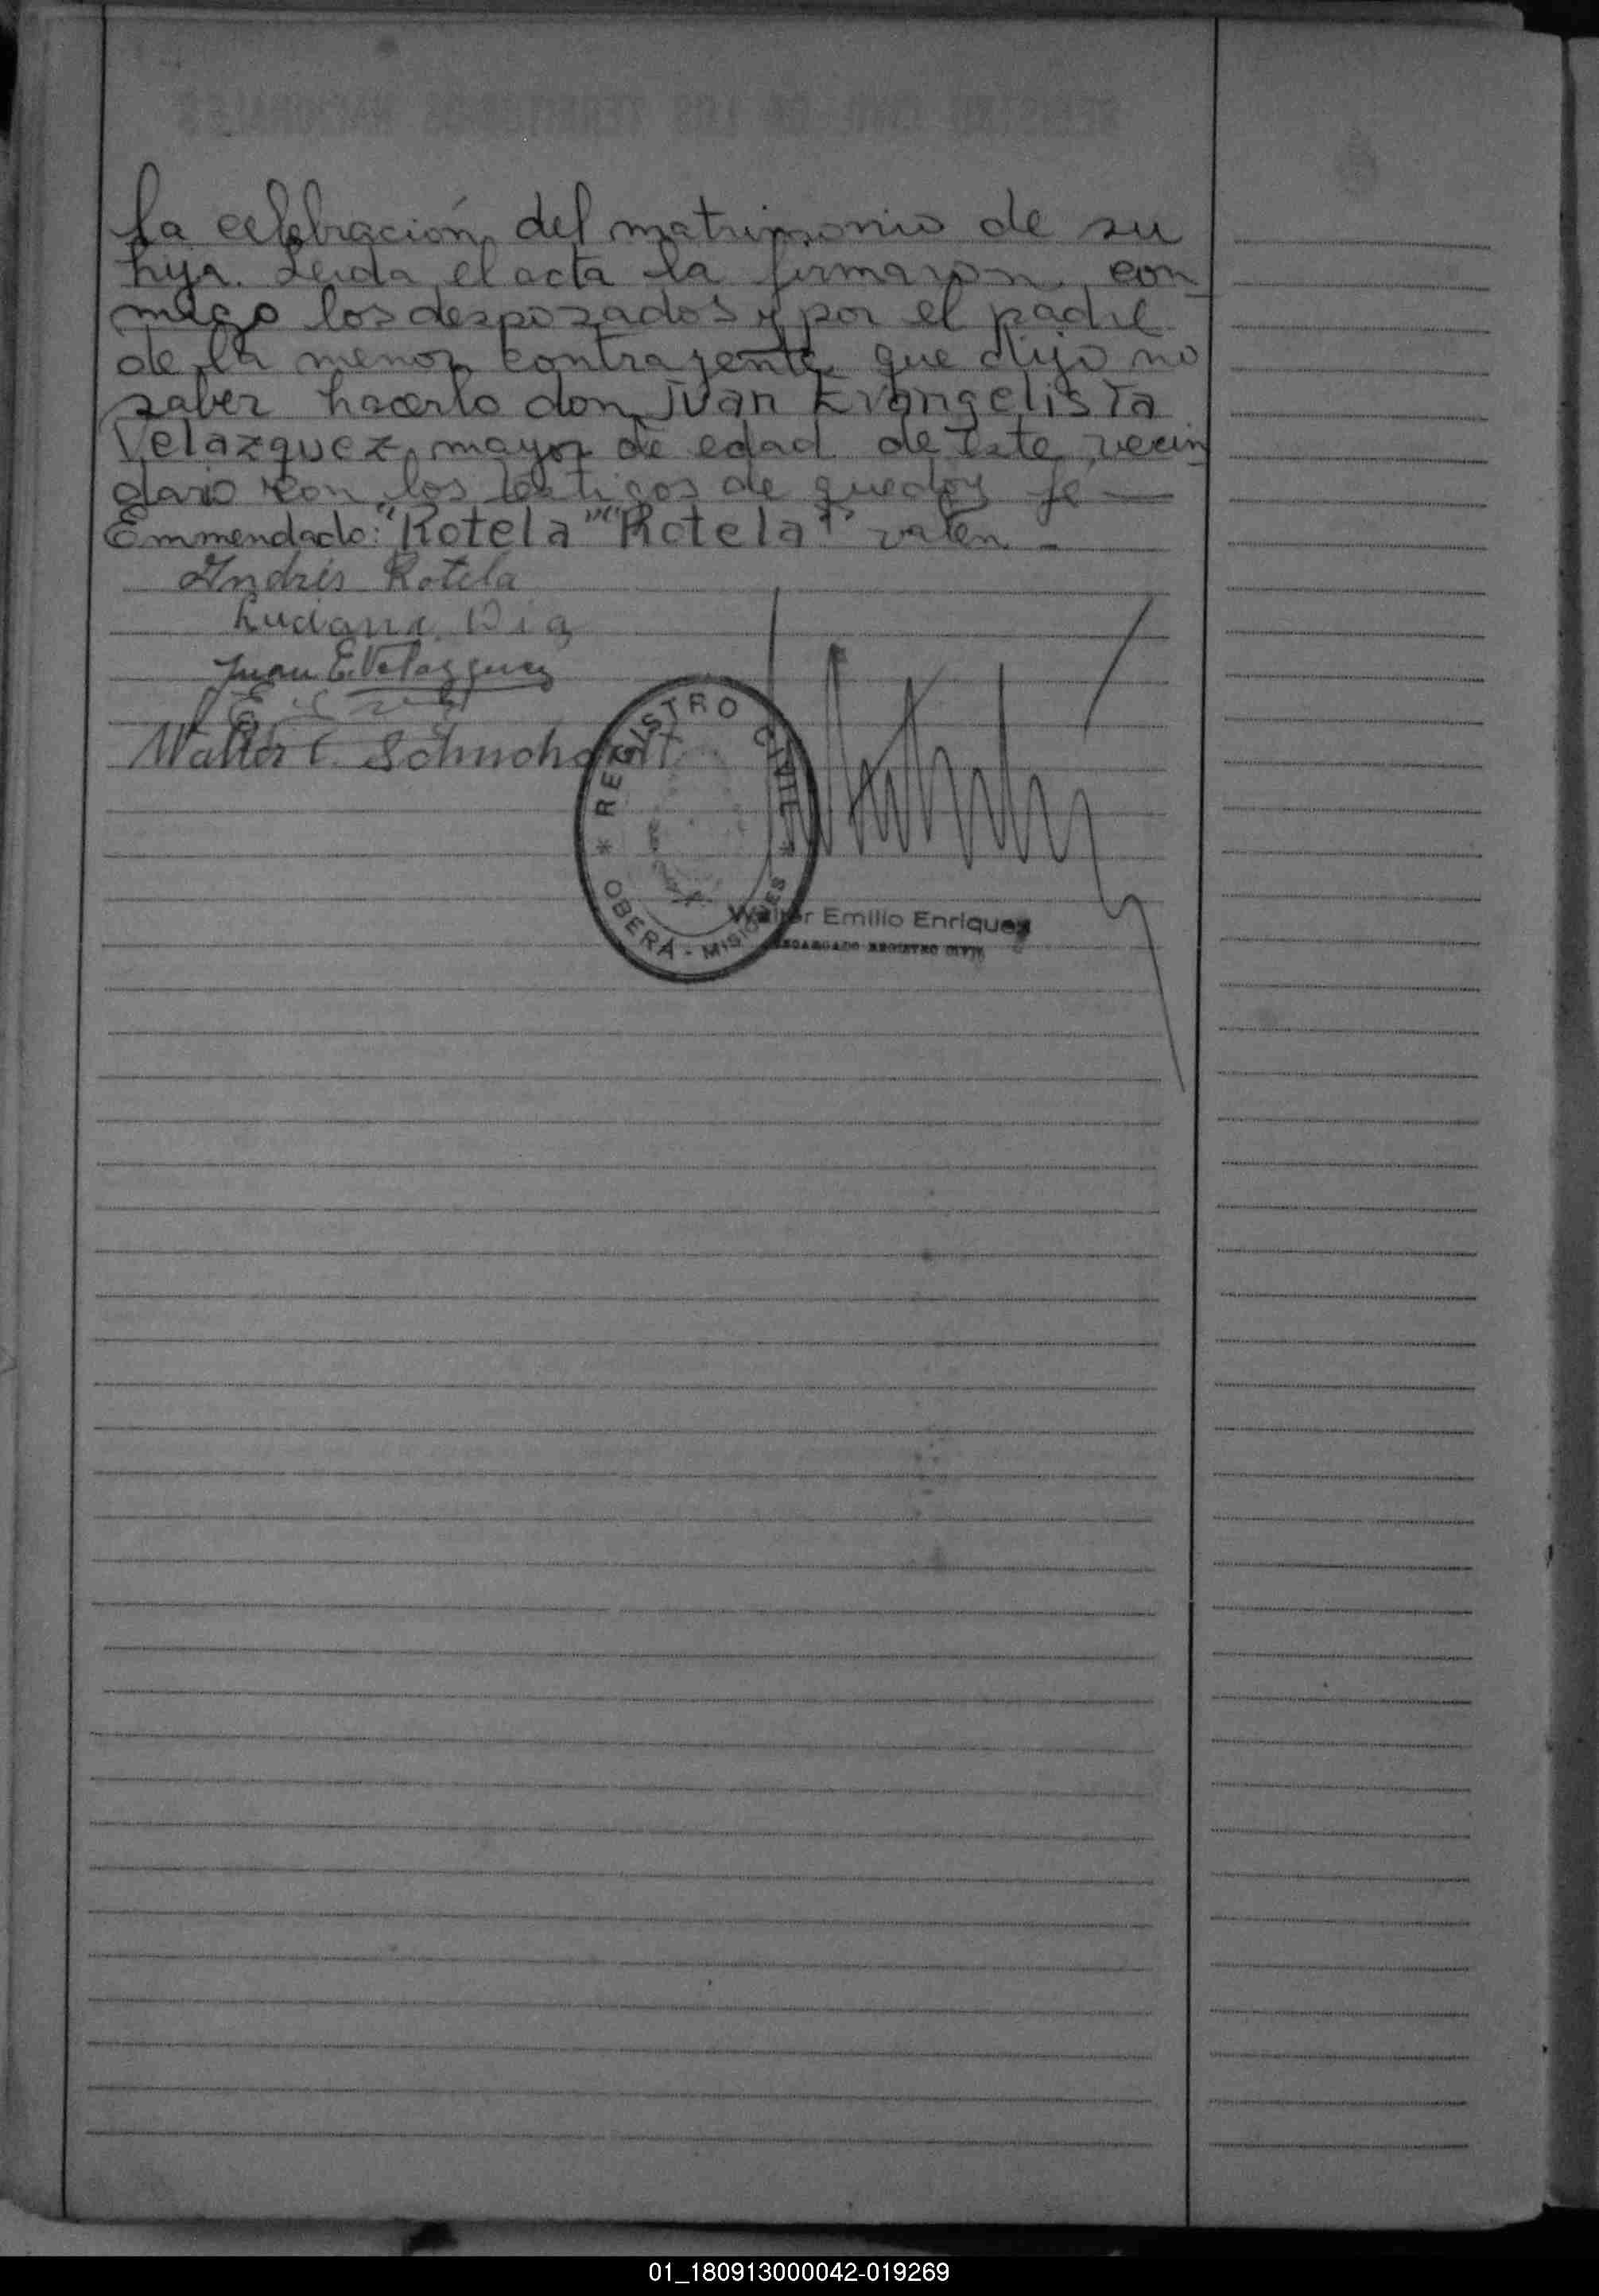 la celebración del matrimonio de su
hija. Leida el acta la firmaron con
migo los desposados y por el padre
de la menor contrayente que dijo no
saber hacerlo don Juan Evangelista
Velazquez mayor de edad de este vecin
dario con los testigos de que doy fe —
Emmendado: "Rotela" "Rotela" valen -
Andrés Rotela
Luciana Dia
Juan E. Velazquez
Walter E. Schuchardt
* REGISTRO CIVIL *
OBERÁ - MISIONES
Walter Emilio Enriquez
ENCARGADO REGISTRO CIVIL
01_180913000042-019269